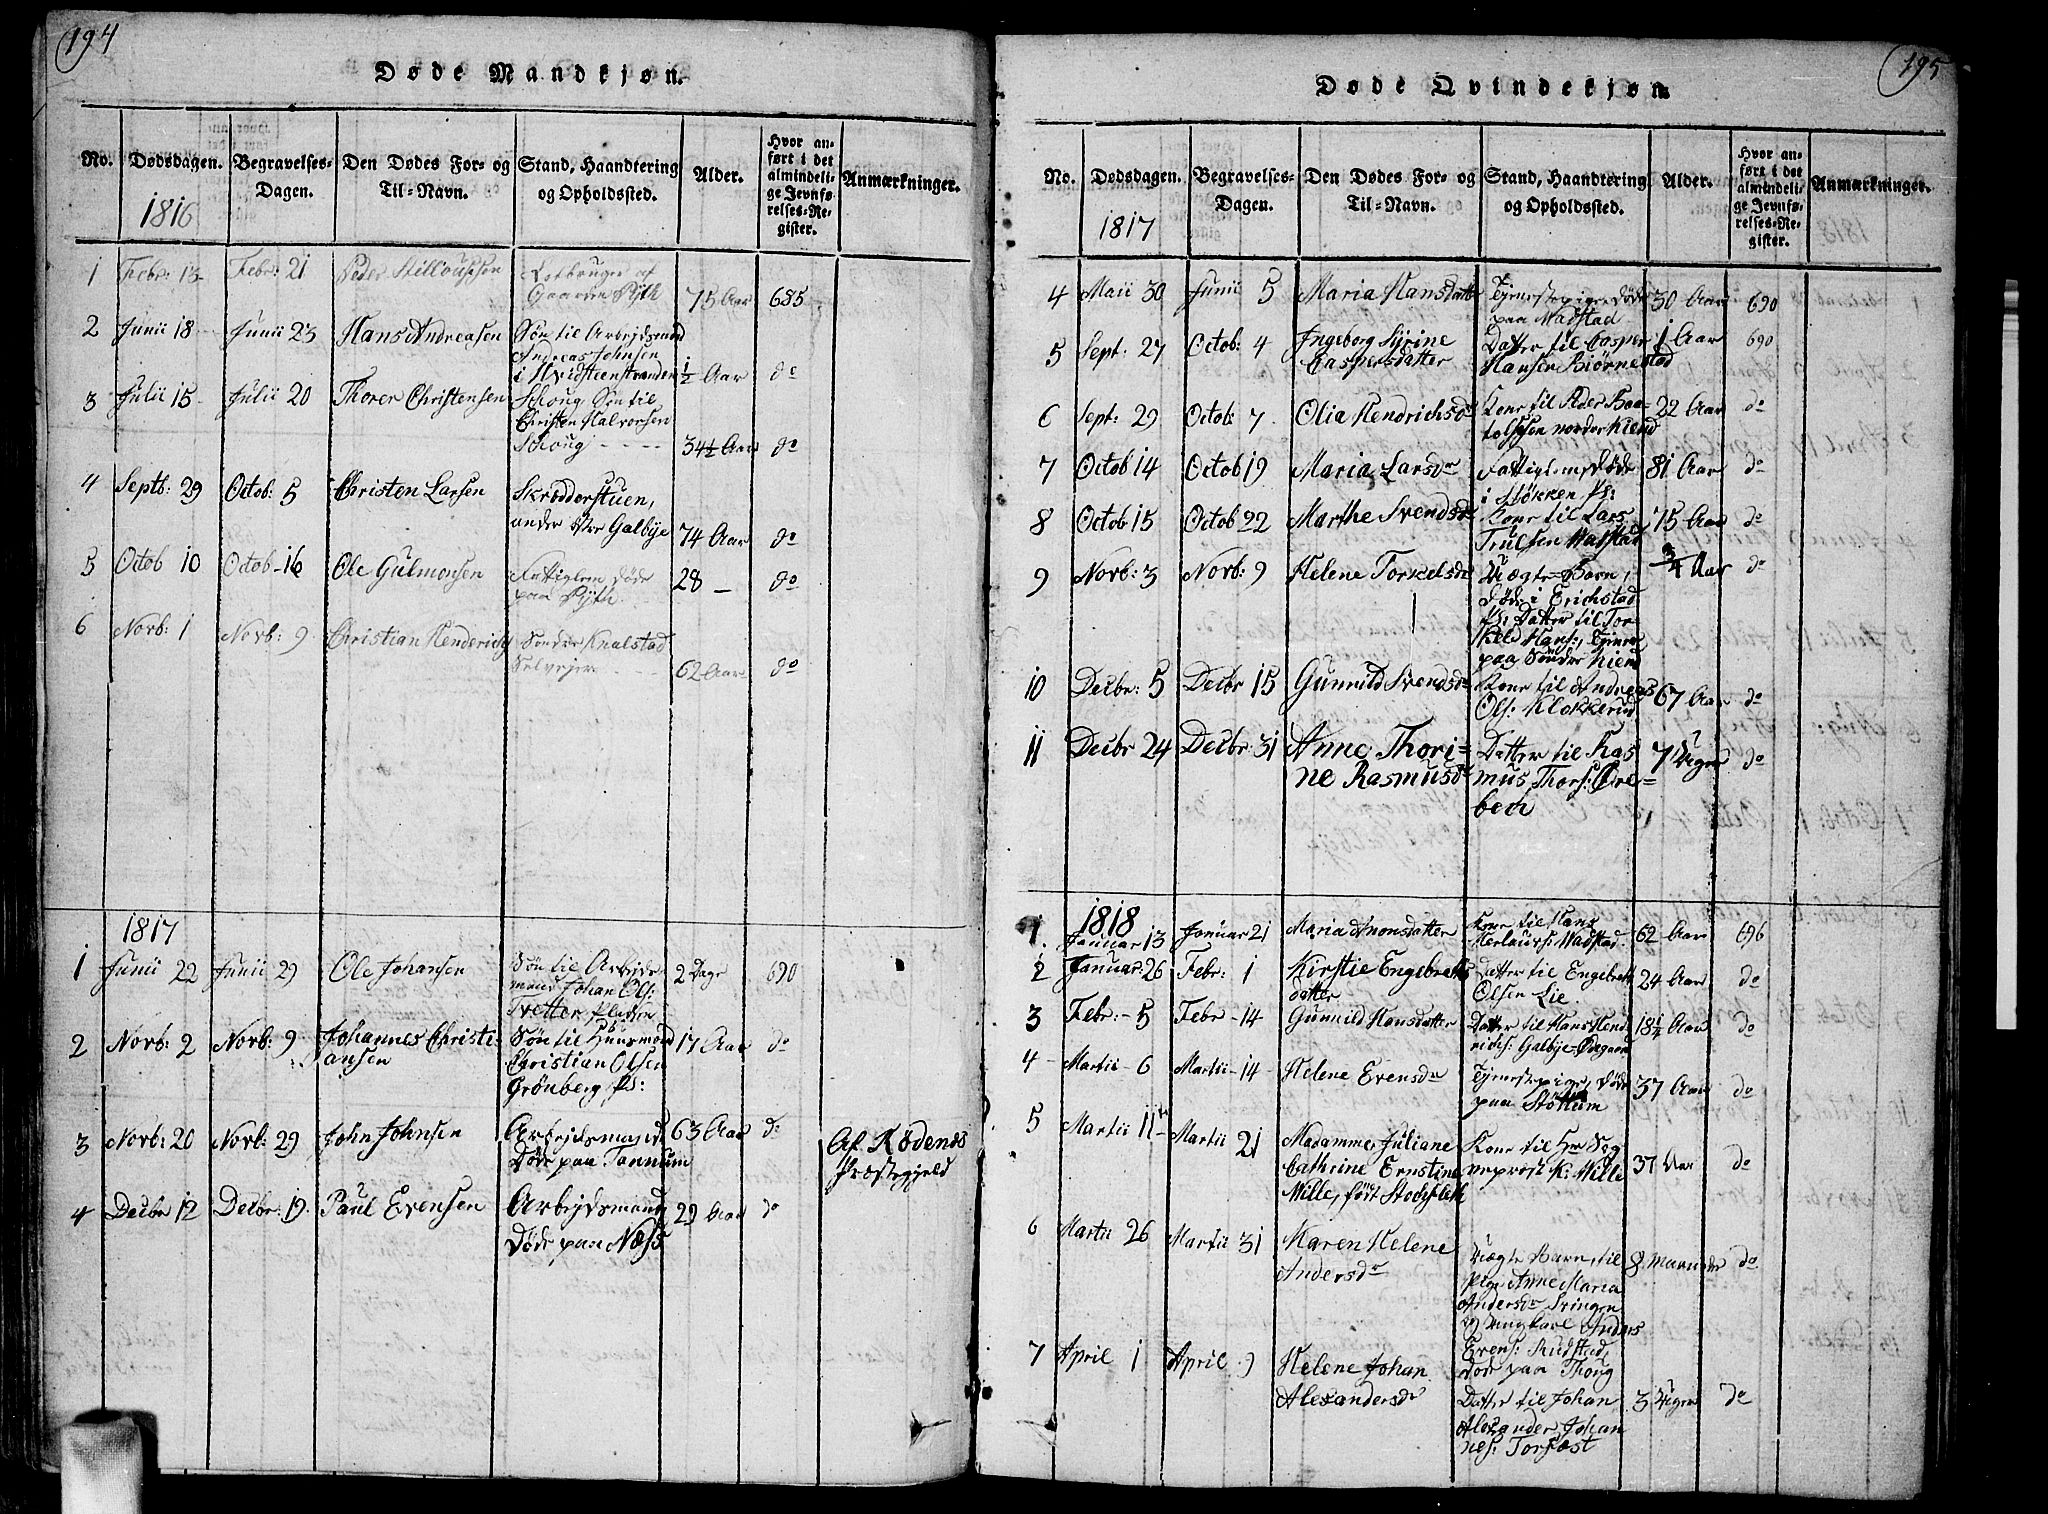 194
Døde Mandkjøn.
No. Dødsdagen. Begravelses-Dagen. Den Dødes For- og Til-Navn. Stand, Haandtering og Opholdssted. Alder. Hvor anført i det almindelige Jevnførelses-Register. Anmærkninger.
1816
1 Febr: 13 Febr: 21 Peder
Gaarden Ryth 75 Aar 685
2 Junii 18 Junii 23 Hans Andreasen Søn til Arbejdsmand
Andreas Johnsen
i Hvidsteenstranden ½ Aar do
3 Julii 15 Julii 20 Thorer Christensen Schoug Søn til
Christen Halvorsen
Schoug 34½ Aar do
4 Septb: 29 Octob: 5 Christen Larsen Skrædderstuen,
under Galbye 74 Aar do
5 Octob 10 Octob 16 Ole Gulmonsen Fattiglem døde
paa Ryth 28 — do
6 Norb: 1 Norb: 9 Christian Henderichs Søndre Knalstad
Selvejer 62 Aar do
1817
1 Junii 22 Junii 29 Ole Johansen Søn til Arbejds-
mand Johan Ols: 2 Dage 690
Tvetter Pladsen
2 Norb: 2 Norb: 9 Johannes Christi-
ansen Søn til Huusmand 17 Aar do
Christian Olsen
Grønberg, Ps:
3 Norb: 20 Norb: 29 John Johnsen Arbejdsmand 63 Aar do
Døde paa Tannum
Af Rødenes
Præstegjeld
4 Decbr 12 Decbr: 19 Paul Evensen Arbejdsmand 29 Aar do
Døde paa Næss
195
Døde Qvindekjøn
No. Dødsdagen. Begravelses-Dagen. Den Dødes For- og Til-Navn. Stand, Haandtering og Opholdssted. Alder. Hvor anført i det almindelige Jevnførelses-Register. Anmærkninger.
1817
4 Maii 30 Junii 5 Maria Hansdatter Tjenestepige døde 30 Aar 690
paa Wadstad
5 Sept: 27 Octob: 4 Ingeborg Syrine
Caspersdatter Datter til Casper 1 Aar 690
Hansen Biørnestad
6 Sept: 29 Octob: 7 Olia Hendrichsdr Kone til Peder Baa- 22 Aar do
tolfsen norder Kiend
7 Octob 14 Octob 19 Maria Larsdr Fattiglem, Døde 81 Aar do
i Støkken Ps:
8 Octob 15 Octob 22 Marthe Svendsdr Kone til Lars 75 Aar do
Trulsen Wadstad
9 Norb: 3 Norb: 9 Helene Torkelsdr Uægte Barn, ¾ Aar do
Døde i Erichstad
Ps: Datter til Tor-
keld Hans: Tjener
paa Sønder Kiend
10 Decbr: 5 Decbr 15 Gunnild Svendsdr Kone til Andreas 67 Aar do
Ols: Klokkerud
11 Decbr 24 Decbr 31 Anne Thori-
ne Rasmusdr Datter til Ras 7 Uger do
mus Thors: Ore-
bech
1818
1. Januar 13 Januar 21 Maria Amonsdatter Kone til Hans
Herlaugs: Wadstad 62 Aar 696
2 Januar 26 Febr: 1 Kirstie Engebretts
datter Datter til Engebrett 24 Aar do
Olsen Lie.
3 Febr:- 5 Febr - 14 Gunnild Hansdatter Datter til Hans Hend 18½ Aar do
richs: Galbye-Ødegaard
4 Martii - 6 Martii - 14 Helene Evensdr Tjenestepige, Døde 37 Aar do
paa Støttum
5 Martii 11 Martii 21 Madamme Juliane
Cathrine Ernstine
Wille, født Stochfleth Kone til Hr Sog
neprost H: Wille 37 Aar do
6 Martii 26 Martii 31 Maren Helene
Andersdr Uægte Barn, til 8 Maaneder do
Pige Anne Maria
Andersdr
og Ungkarl Anders
Evens: Rudstad,
døde paa Thoug
7 April 1 April 9 Helene Johan
Alexandersdr Datter til Johan 3 Uger do
Alexander Johan
nes: Torfæst